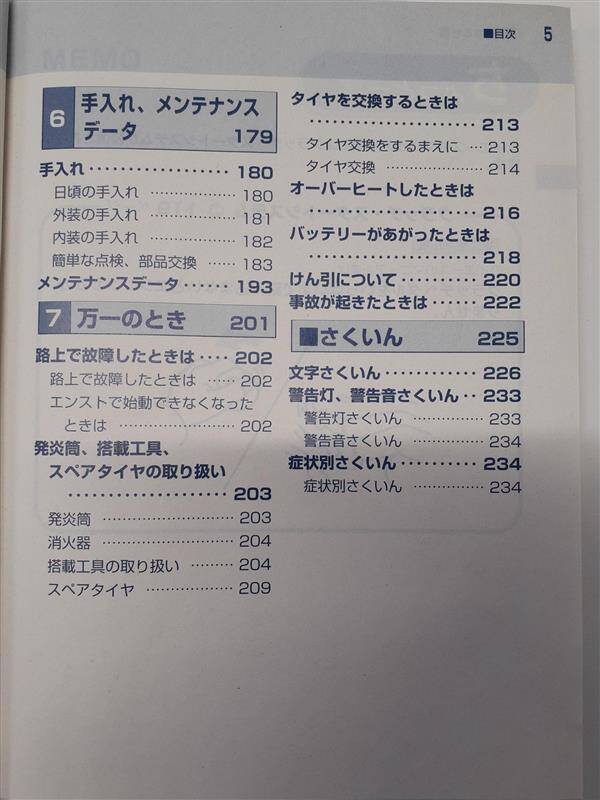 ■目次 5
6 手入れ、メンテナンス
データ 179
手入れ・・・・・・・・・・・・・・・・・ 180
日頃の手入れ ……………… 180
外装の手入れ ……………… 181
内装の手入れ ……………… 182
簡単な点検、部品交換 …… 183
メンテナンスデータ・・・・・・ 193
7 万一のとき 201
路上で故障したときは・・・・ 202
路上で故障したときは …… 202
エンストで始動できなくなった
ときは ……………………… 202
発炎筒、搭載工具、
スペアタイヤの取り扱い
・・・・・・・・・・・・・・・・・・・・ 203
発炎筒 ……………………… 203
消火器 ……………………… 204
搭載工具の取り扱い ……… 204
スペアタイヤ ……………… 209
タイヤを交換するときは
・・・・・・・・・・・・・・・・・・・・ 213
タイヤ交換をするまえに … 213
タイヤ交換 ………………… 214
オーバーヒートしたときは
・・・・・・・・・・・・・・・・・・・・ 216
バッテリーがあがったときは
・・・・・・・・・・・・・・・・・・・・ 218
けん引について・・・・・・・・・・ 220
事故が起きたときは・・・・・・ 222
■さくいん 225
文字さくいん・・・・・・・・・・・・ 226
警告灯、警告音さくいん・・ 233
警告灯さくいん …………… 233
警告音さくいん …………… 234
症状別さくいん・・・・・・・・・・ 234
症状別さくいん …………… 234